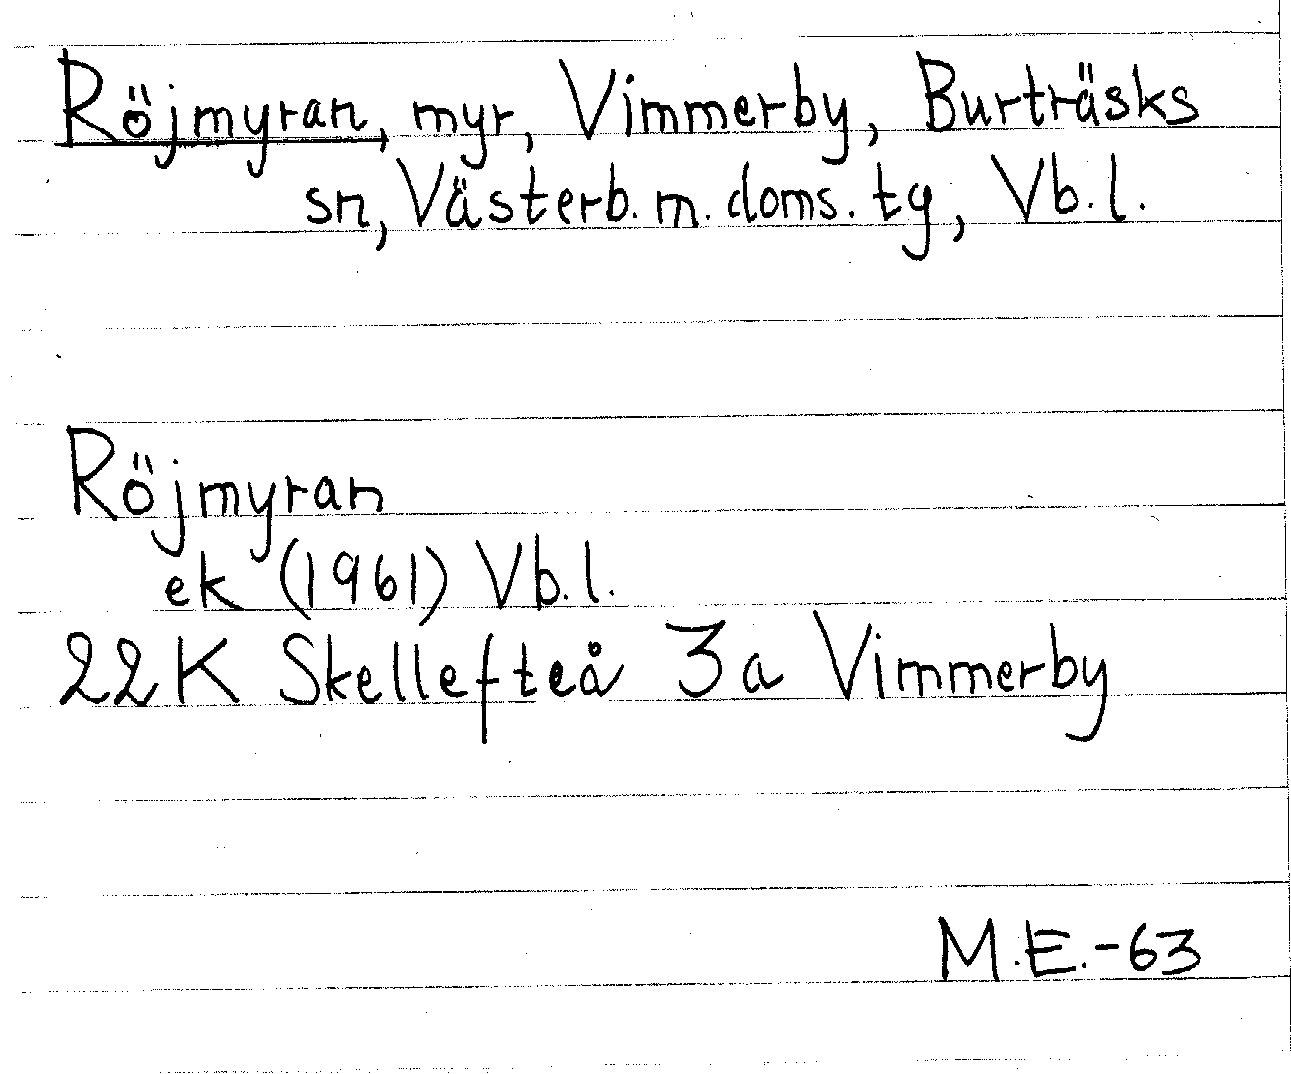 Röjmyran, myr, Vimmerby, Burträsks
sn, Västerb. m. doms. tg, Vb. l.
Röjmyran
ek (1961) Vb. l.
22K Skellefteå 3a Vimmerby
M.E.-63